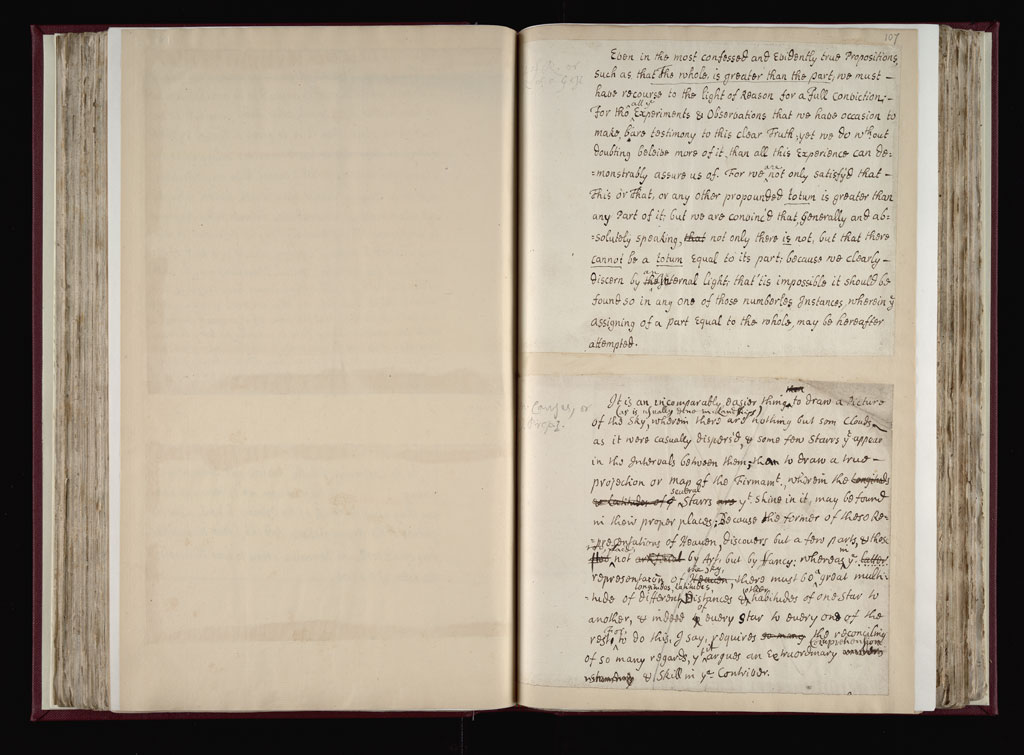 107
Even in the most confessed and Evidently true Propositions
such as that The whole, is greater than the part, we must –
have recourse to the light of Reason for a full Conviction; –
For tho all yᵉ Experiments & Observations that we have occasion to
make, bare testimony to this clear Truth; yet we do wthout
doubting beleive more of it, than all this Experience can de=
=monstrably assure us of. For we are not only satisfy'd that –
This or That, or any other propounded totum is greater than
any Part of it; but we are convinc'd that, generally and ab=
=solutely speaking, that not only there is not, but that there
cannot be a totum Equal to its part; because we clearly –
discern by an Internal light, that 'tis impossible it should be
found so in any one of those numberles Instances, wherein yᵉ
assigning of a part Equal to the whole, may be hereafter
attempted.
It is an incomparably easier thing to draw a Picture
of the Sky (as is usually done in Landskips) wherein there are nothing but som Clouds
as it were casually dispers'd, & some few Starrs yt appear
in the Intervals between them; than to draw a true –
projection or map of the Firmamt., wherein the Longitudes
& Latitudes of several Starrs are yt. shine in it, may be found
in their proper places; Because the former of these Re=
=presentations of Heaven, discovers but a few parts, & those
not artificial by Art, but by Fancy; whereas in yᵉ. latter
representation of Heaven the sky, there must be a great multi=
=tude of different longitudes, latitudes, Distances & other habitudes of one Star to
another, & indeed of every Star to every one of the
rest: For to do this, I say, requires so many the reconciling
of so many regards, yt it argues an Extraordinary comprehension
& Skill in yᵉ Contriver.